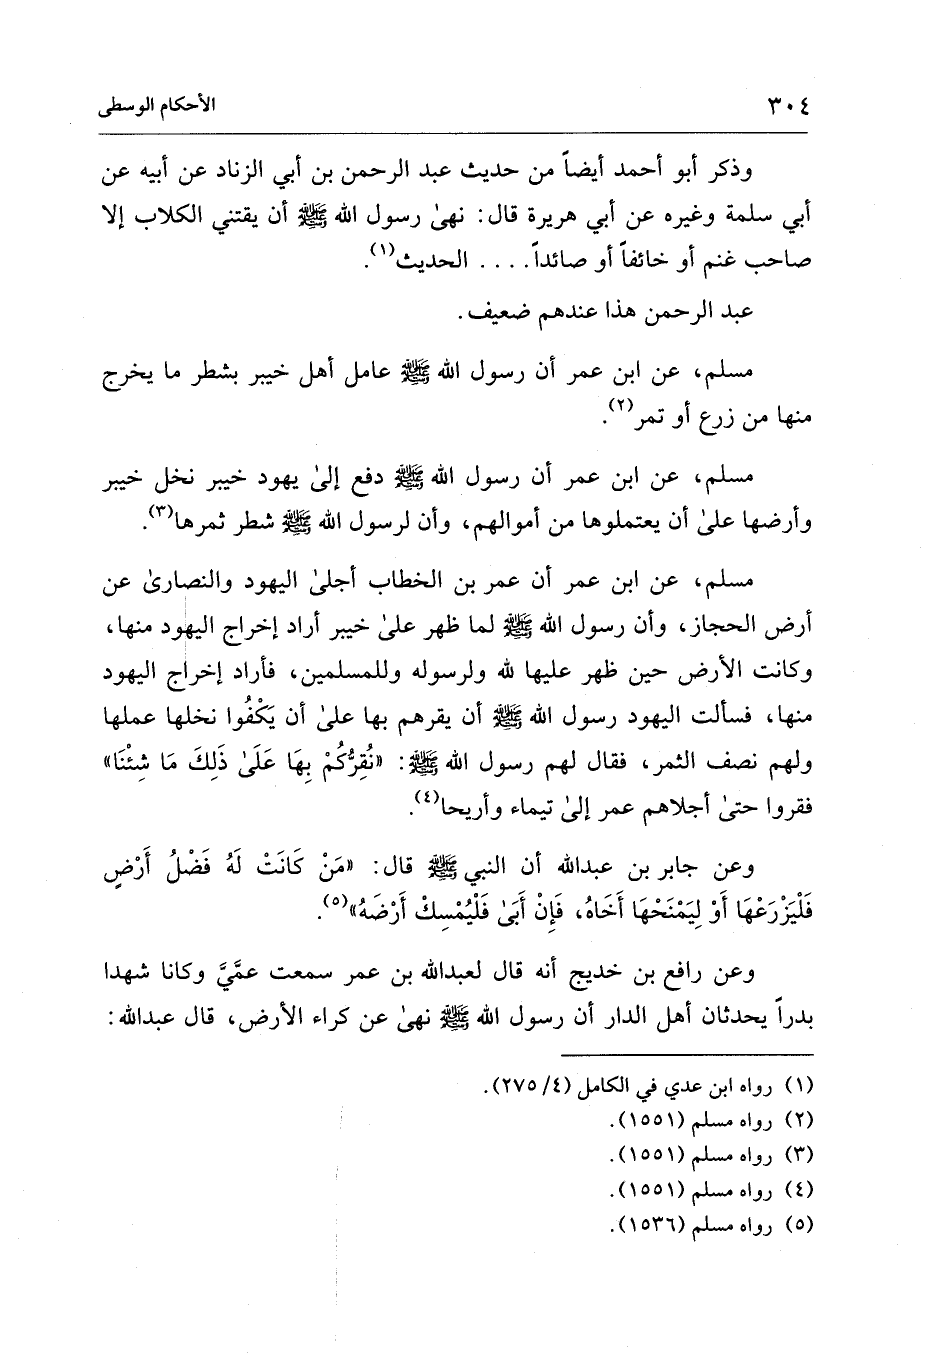 ٣٠٤ الأحكام الوسطى
وذكر أبو أحمد أيضاً من حديث عبد الرحمن بن أبي الزناد عن أبيه عن
أبي سلمة وغيره عن أبي هريرة قال: نهىٰ رسول الله ﷺ أن يقتني الكلاب إلا
صاحب غنم أو خائفاً أو صائداً.... الحديث(١).
عبد الرحمن هذا عندهم ضعيف.
مسلم، عن ابن عمر أن رسول الله ﷺ عامل أهل خيبر بشطر ما يخرج
منها من زرع أو تمر(٢).
مسلم، عن ابن عمر أن رسول الله ﷺ دفع إلىٰ يهود خيبر نخل خيبر
وأرضها علىٰ أن يعتملوها من أموالهم، وأن لرسول الله ﷺ شطر ثمرها(٣).
مسلم، عن ابن عمر أن عمر بن الخطاب أجلىٰ اليهود والنصارىٰ عن
أرض الحجاز، وأن رسول الله ﷺ لما ظهر علىٰ خيبر أراد إخراج اليهود منها،
وكانت الأرض حين ظهر عليها لله ولرسوله وللمسلمين، فأراد إخراج اليهود
منها، فسألت اليهود رسول الله ﷺ أن يقرهم بها علىٰ أن يَكْفُوا نخلها عملها
ولهم نصف الثمر، فقال لهم رسول الله ﷺ: «نُقِرُّكُمْ بِهَا عَلَىٰ ذَلِكَ مَا شِئْنَا»
فقروا حتىٰ أجلاهم عمر إلىٰ تيماء وأريحا(٤).
وعن جابر بن عبدالله أن النبي ﷺ قال: «مَنْ كَانَتْ لَهُ فَضْلُ أَرْضٍ
فَلْيَزْرَعْهَا أَوْ لِيَمْنَحْهَا أَخَاهُ، فَإِنْ أَبَىٰ فَلْيُمْسِكْ أَرْضَهُ»(٥).
وعن رافع بن خديج أنه قال لعبدالله بن عمر سمعت عمَّيَّ وكانا شهدا
بدراً يحدثان أهل الدار أن رسول الله ﷺ نهىٰ عن كراء الأرض، قال عبدالله:
(١) رواه ابن عدي في الكامل (٤/ ٢٧٥).
(٢) رواه مسلم (١٥٥١).
(٣) رواه مسلم (١٥٥١).
(٤) رواه مسلم (١٥٥١).
(٥) رواه مسلم (١٥٣٦).